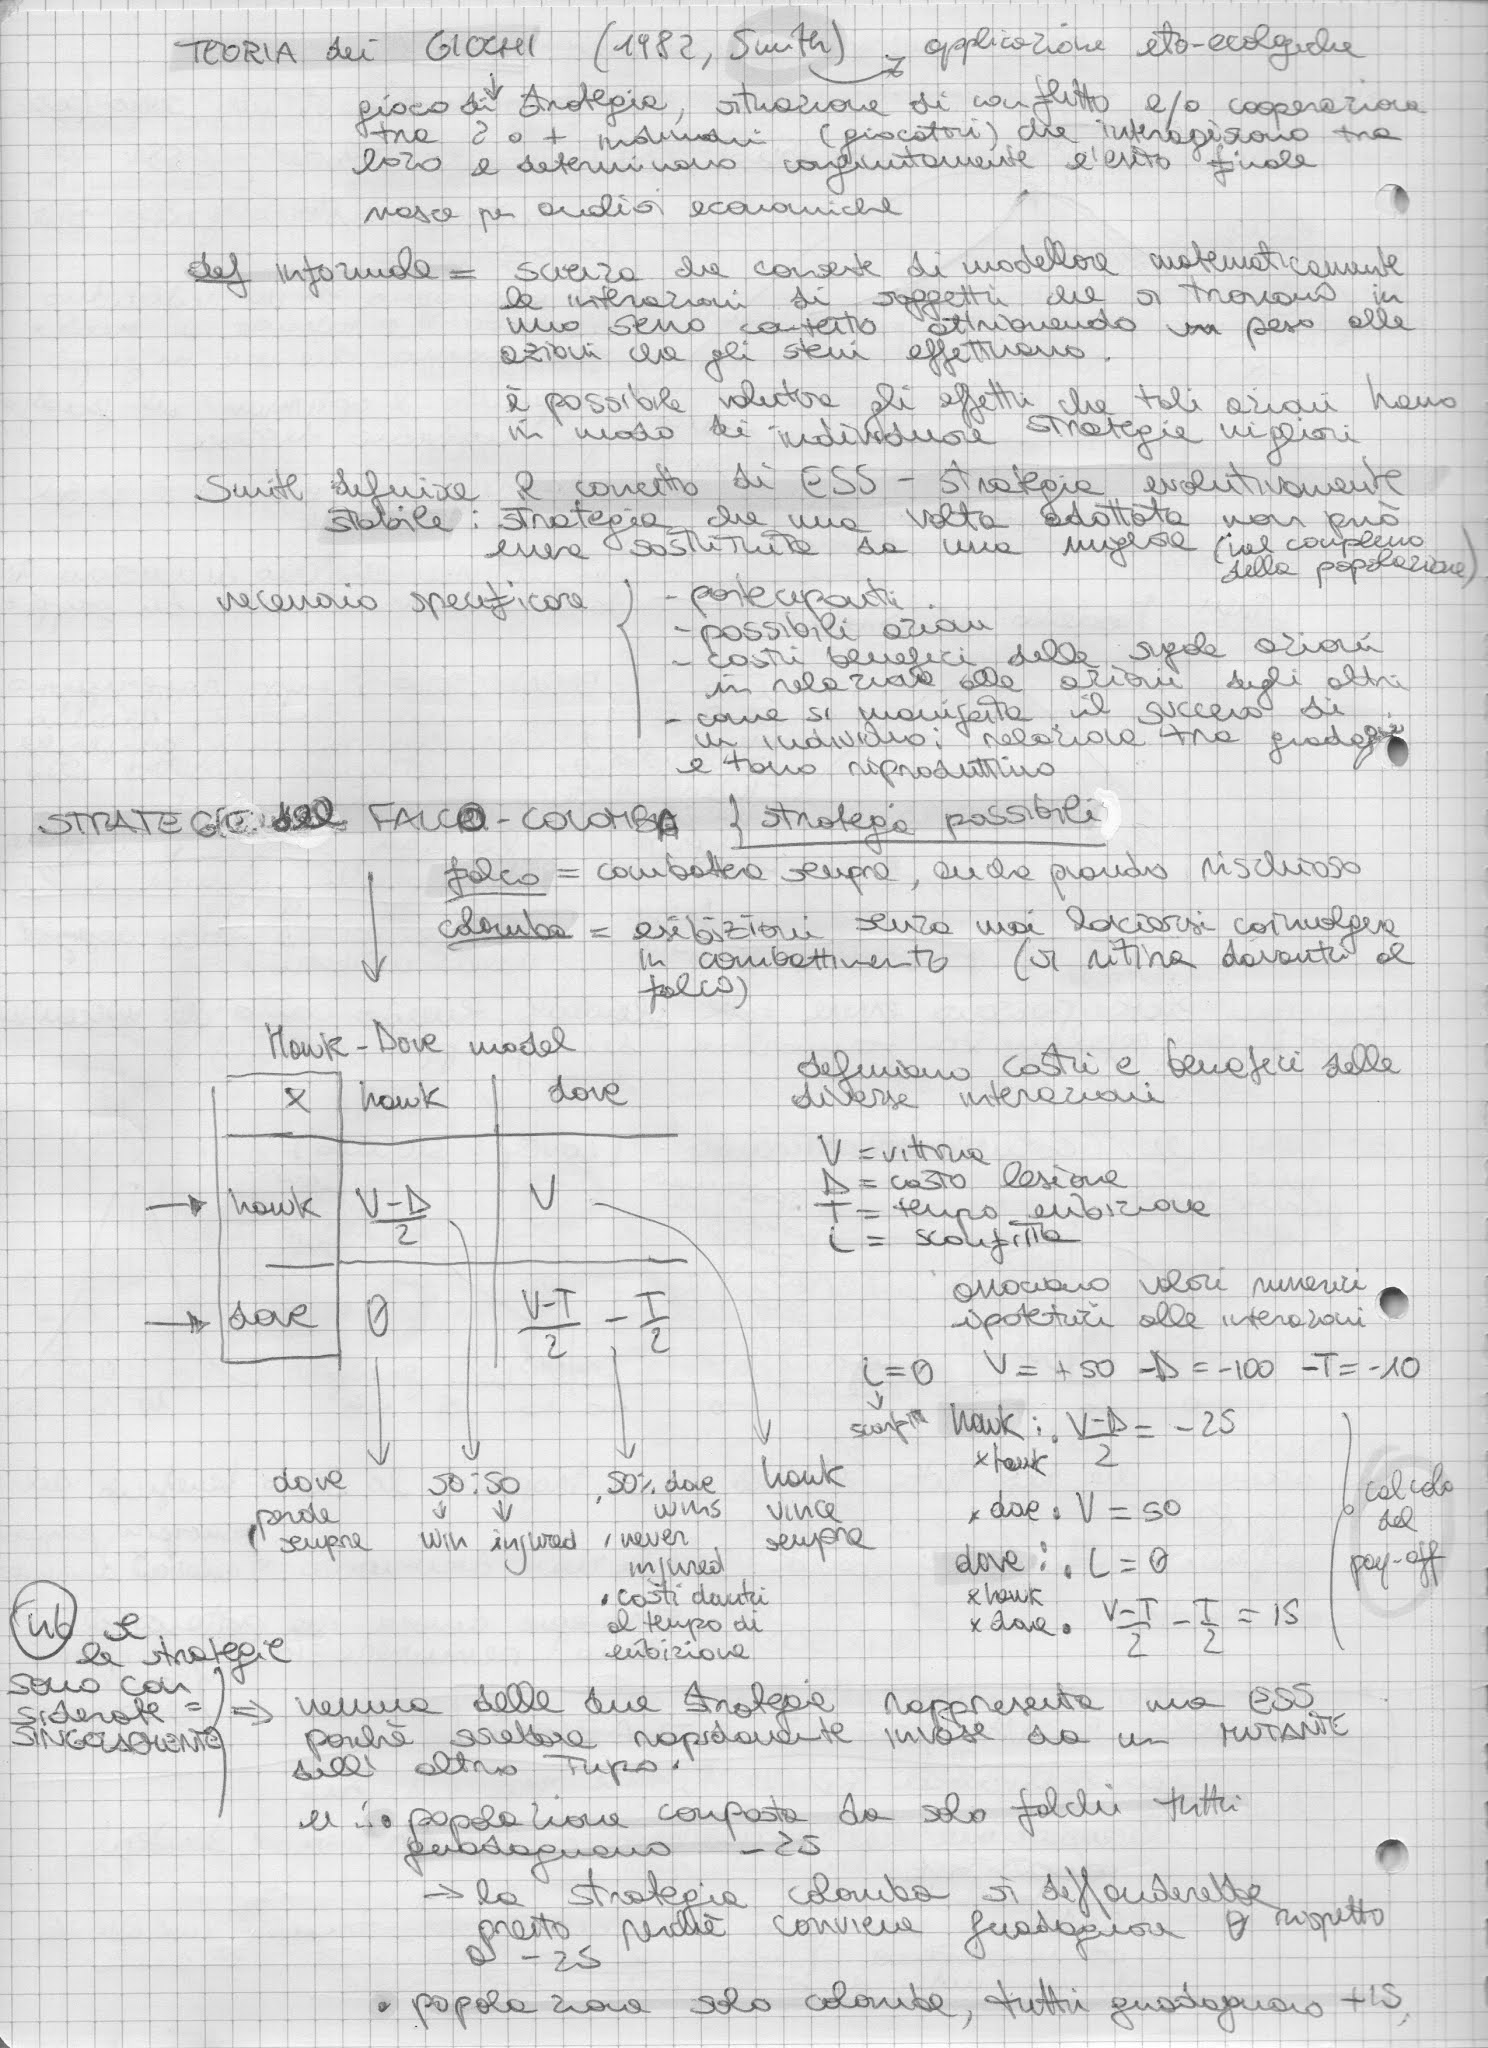 TEORIA dei GIOCHI (1982, Smith) → applicazione eto-ecologiche
gioco di strategia, situazione di conflitto e/o cooperazione
tra 2 o + individui (giocatori) che interagiscono tra
loro e determinano congiuntamente l'esito finale
nasce per analisi economiche
def informale = scienza che consente di modellare matematicamente
le interazioni di soggetti che si trovano in
uno stesso contesto attribuendo un peso alle
azioni che gli stessi effettuano.
è possibile valutare gli effetti che tali azioni hanno
in modo di individuare strategie migliori
Smith definisce il concetto di ESS - strategia evolutivamente
stabile: strategia che una volta adottata non può
essere sostituita da una migliore (nel complesso
della popolazione)
necessario specificare { - partecipanti.
- possibili azioni
- costi benefici delle singole azioni
in relazione alle azioni degli altri
- come si manifesta il successo di
un individuo: relazione tra guadagni
e tasso riproduttivo
STRATEGIE del FALCO-COLOMBA } strategie possibili
falco = combattere sempre, anche quando rischioso
colomba = esibizioni senza mai lasciarsi coinvolgere
in combattimento (si ritira davanti al
falco)
Hawk-Dove model
x hawk dove
hawk V-D/2 V
dove 0 V-T/2 - T/2
definiamo costi e benefici delle
diverse interazioni
V = vittoria
D = costo lesione
T = tempo esibizione
i = sconfitta
associamo valori numerici
ipotetici alle interazioni
i=0 V=+50 -D=-100 -T=-10
hawk: . V-D/2 = -25
x hawk
x dove . V = 50
dove: . i = 0
x hawk
x dove . V-T/2 - T/2 = 15
calcolo
del
pay-off
dove
perde
sempre
50:50
win injured
. 50% dove
wins
. never
injured
. costi dovuti
al tempo di
esibizione
hawk
vince
sempre
nb se
le strategie
sono con
siderate =
SINGOLARMENTE
⇒ nessuna delle due strategie rappresenta una ESS
perché sarebbe rapidamente invase da un MUTANTE
dell'altro tipo.
es: • popolazione composta da solo falchi tutti
guadagnano -25
→ la strategia colomba si diffonderebbe
presto perché conviene guadagnare 0 rispetto
a -25
• popolazione solo colombe, tutti guadagnano +15,